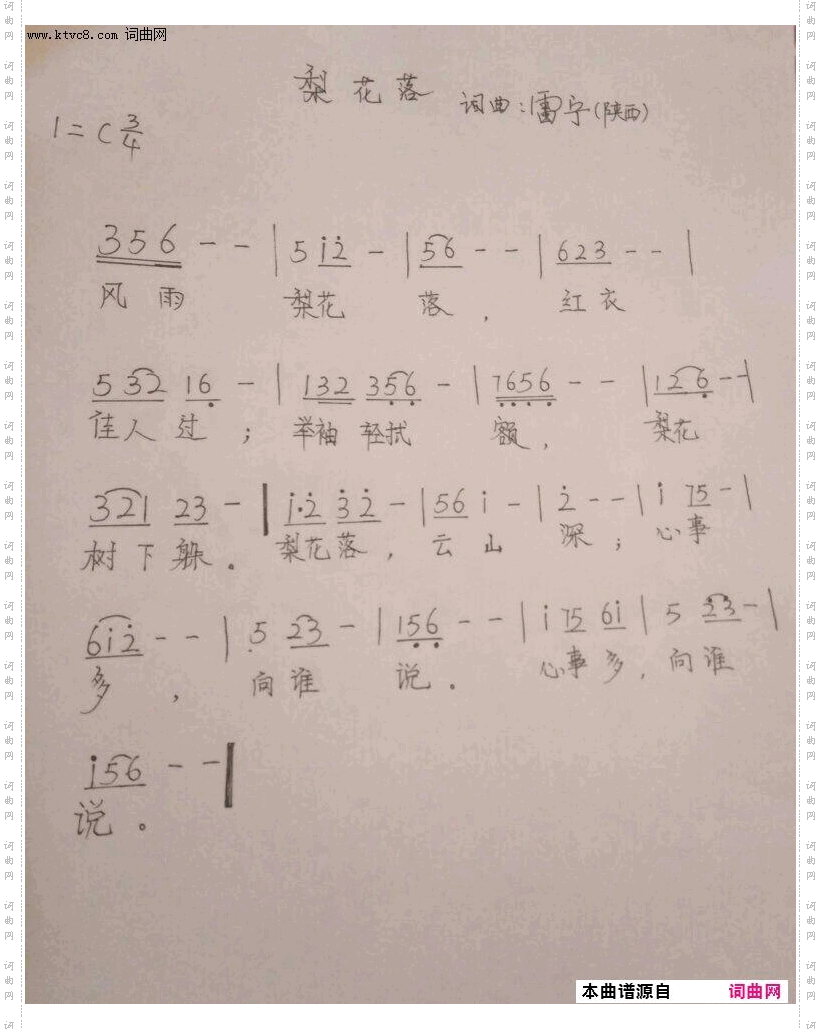 www.ktvc8.com 词曲网
梨花落
词曲:雷宁(陕西)
1=C 3/4
356 - - | 5 i̇2̇ - | 56 - - | 623 - - |
风雨 梨花 落, 红衣
5 32 16̣ - | 132 35̣6̣ - | 7̣6̣5̣6̣ - - | 126̣ - - |
佳人过; 举袖轻拭 额, 梨花
321 23 - | i̇·2̇ 3̇2̇ - | 56 i̇ - | 2̇ - - | i̇ 75 - |
树下躲。 梨花落, 云山 深; 心事
6i̇2̇ - - | 5 23 - | 15̣6̣ - - | i̇ 75 6i̇ | 5 2̇3̇ - |
多, 向谁 说. 心事多, 向谁
i̇56 - - |
说。
本曲谱源自 词曲网